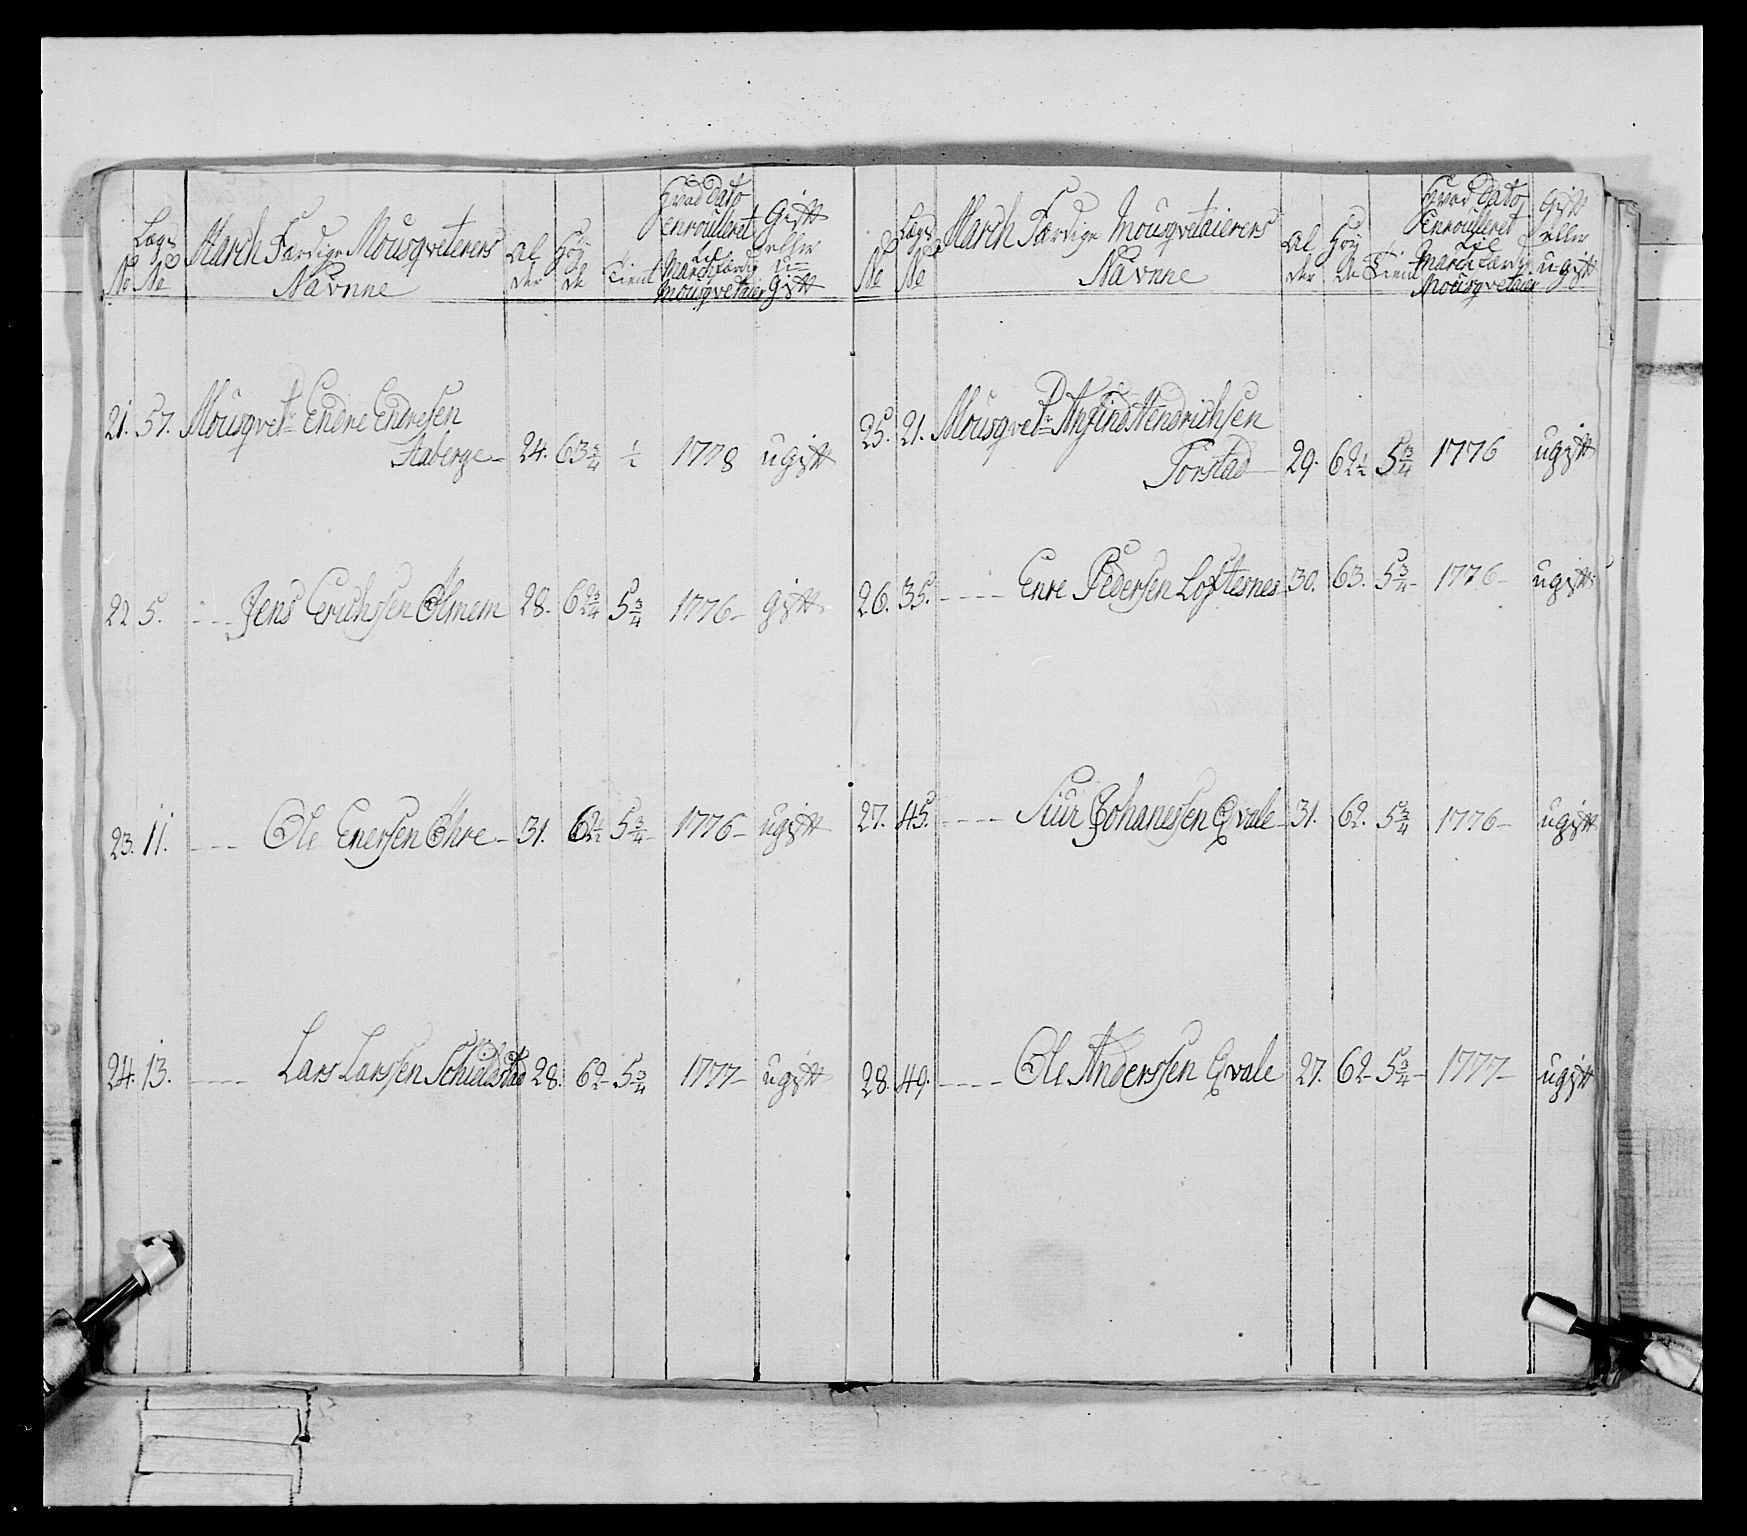 No
Lægs No
March Færdige Mousqveterers Navnne
Alder
Höyde
Tient
Hvad Dato enroulleret til March færdig Mousqvetaier
Gift eller u=gift
21. 57. Mousqvetr Endre Endresen
Staberge 24. 63 3/4 1/2 1778 ugift
22 5. - - - Jens Erichssen Ölmem 28. 62 3/4 5 3/4 1776 gift
23. 11. - - - Ole Enersen Öhre 31. 62 1/2 5 3/4 1776 ugift
24. 13. - - - Lars Larssen Schieldstad 28. 62 5 3/4 1777 ugift
No
Lægs No
March Færdige Mousqvetaierers Navnne
Alder
Höyde
Tient
Hvad Dato Enroulleret til March færdig Mousqvetaier
Gift eller u-gift
25. 21. Mousqvetr Anfind Hendrichsen
Torstad 29. 62 1/2 5 3/4 1776 ugift
26. 35. - - - Enre Pedersen Loftesnes 30. 63. 5 3/4 1776 ugift
27. 45. - - - Siur Johanessen Qvale 31. 62. 5 3/4 1776 ugift
28. 49. - - - Ole Anderssen Qvale 27. 62 5 3/4 1777 ugift